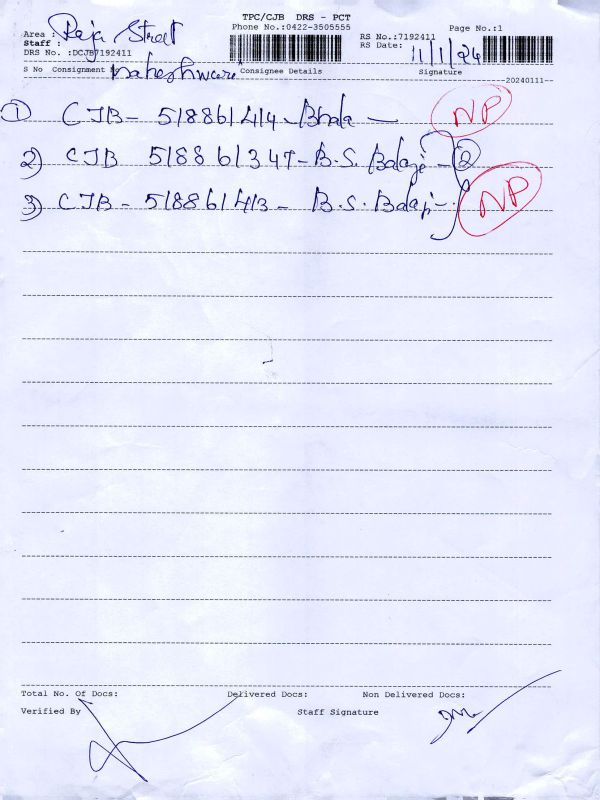 TPC/CJB DRS - PCT
Phone No.:0422-3505555
Page No.:1
Area : Raja Street
Staff : Maheshwari
RS No.:7192411
RS Date: 11/1/24
DRS No. :DCJB7192411
S No Consignment Consignee Details Signature
20240111
1) CJB - 518861414 - Bhala - NP
2) CJB 518861347 - B.S. Balaji - 2
3) CJB - 518861413 - B.S. Balaji - NP
Total No. Of Docs: Delivered Docs: Non Delivered Docs:
Verified By Staff Signature